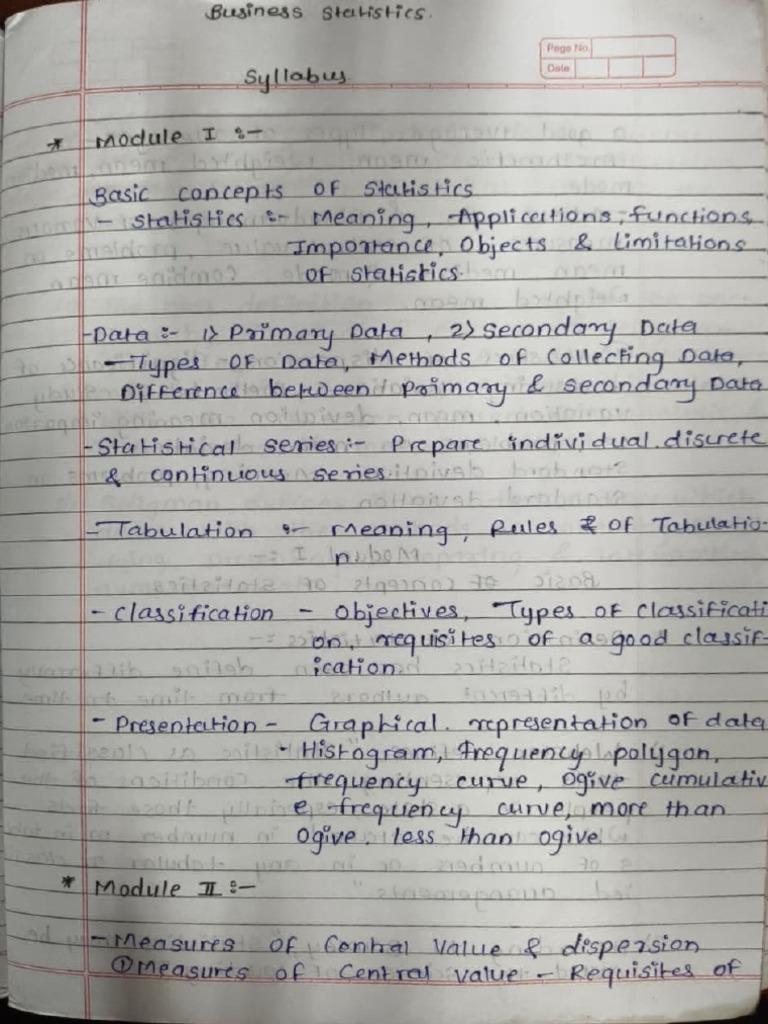 Business Statistics.
Page No.
Date
Syllabus
* Module I :-
Basic concepts of Statistics
- Statistics :- Meaning, Applications, functions,
Importance, Objects & Limitations
of statistics.
- Data :- 1) Primary Data , 2) Secondary Data
- Types of Data, Methods of Collecting Data,
Difference between Primary & secondary Data
- Statistical series :- Prepare individual. discrete
& continuous series.
- Tabulation :- Meaning, Rules & of Tabulatio-
n
- Classification - Objectives, Types of classificati
on, requisites of a good classif-
ication.
- Presentation - Graphical. representation of data
- Histogram, frequency polygon,
frequency curve, Ogive cumulativ
e, frequency curve, more than
Ogive. less than ogive.
* Module II :-
- Measures of Central Value & dispersion
① Measures of Central value - Requisites of